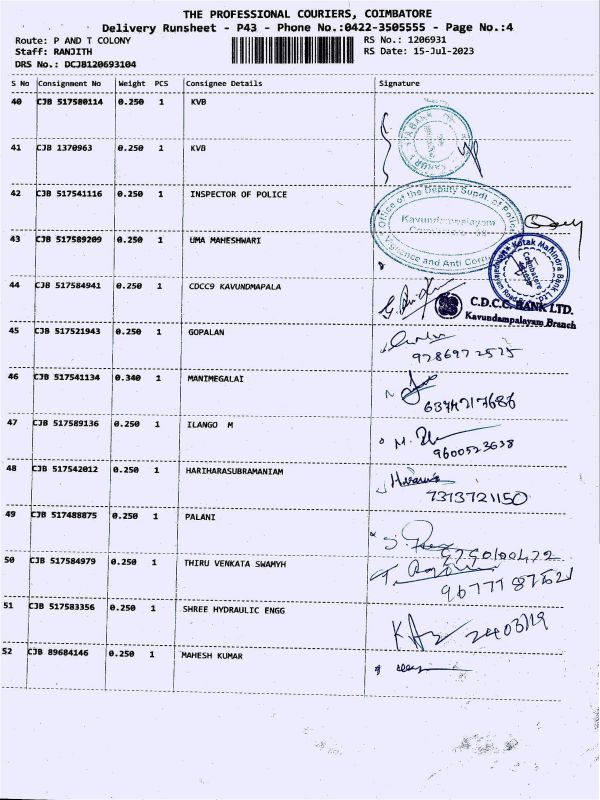 THE PROFESSIONAL COURIERS, COIMBATORE
Delivery Runsheet - P43 - Phone No.:0422-3505555 - Page No.:4
Route: P AND T COLONY RS No.: 1206931
Staff: RANJITH RS Date: 15-Jul-2023
DRS No.: DCJB120693104
S No Consignment No Weight PCS Consignee Details Signature
40 CJB 517580114 0.250 1 KVB
41 CJB 1370963 0.250 1 KVB
42 CJB 517541116 0.250 1 INSPECTOR OF POLICE
Office of the Deputy Supdt. of Police
Kavundampalayam
Vigilance and Anti
43 CJB 517589209 0.250 1 UMA MAHESHWARI
Kotak Mahindra Bank Ltd
Coimbatore
44 CJB 517584941 0.250 1 CDCC9 KAVUNDMAPALA
C.D.C.C. BANK LTD.
Kavundampalayam Branch
45 CJB 517521943 0.250 1 GOPALAN
9786972525
46 CJB 517541134 0.340 1 MANIMEGALAI
6374717686
47 CJB 517589136 0.250 1 ILANGO M
9600523638
48 CJB 517542012 0.250 1 HARIHARASUBRAMANIAM
7373721150
49 CJB 517488875 0.250 1 PALANI
50 CJB 517584979 0.250 1 THIRU VENKATA SWAMYH
9677787521
51 CJB 517583356 0.250 1 SHREE HYDRAULIC ENGG
52 CJB 89684146 0.250 1 MAHESH KUMAR